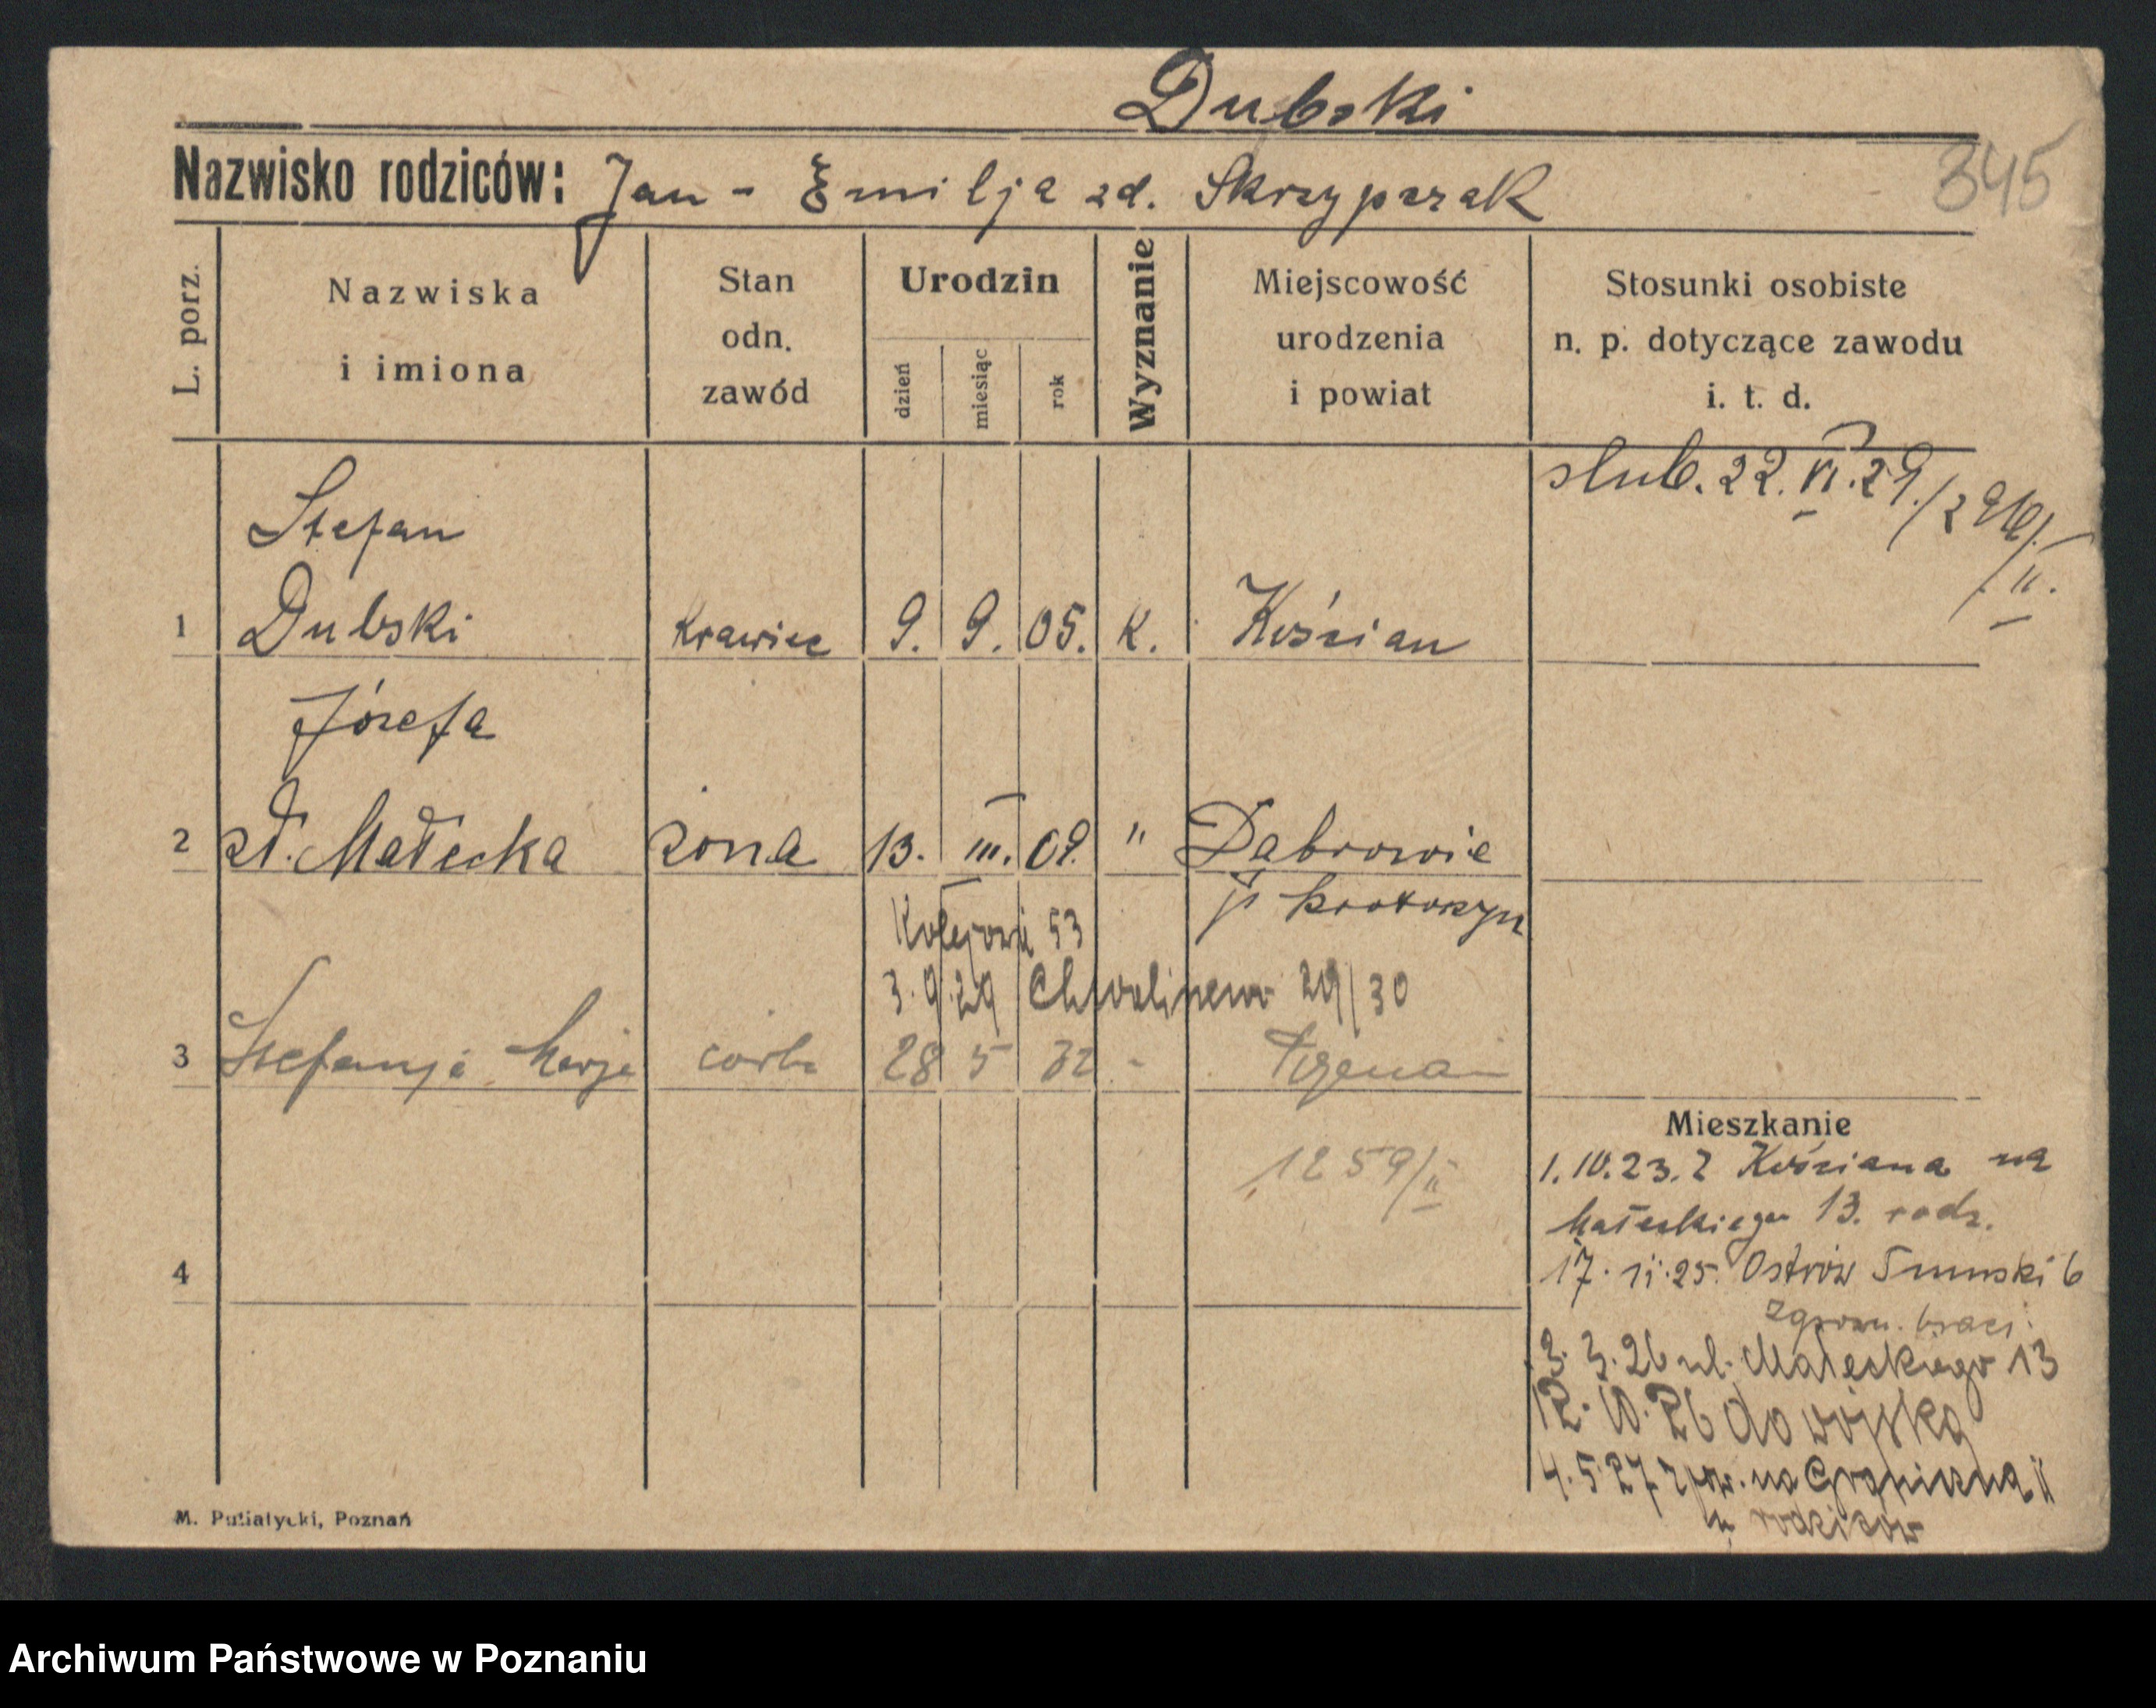 Dubski
Nazwisko rodziców: Jan - Emilja zd. Skrzypczak
345
L. porz.
Nazwiska i imiona
Stan odn. zawód
Urodzin
dzień
miesiąc
rok
Wyznanie
Miejscowość urodzenia i powiat
Stosunki osobiste n. p. dotyczące zawodu i. t. d.
ślub. 22. VI. 29.
II.
Stefan
1 Dubski krawiec 9. 9. 05. k. Kościan
Józefa
2 zd. Małecka żona 13. III. 09. " Dąbrowie
p Krotoszyn
Kolejowa 53
3.9.29 29/30
3 Stefanja Marja córka 28 5 32 -
1259/II
4
Mieszkanie
1.10.23. z Kościana na
Małeckiego 13. rodz.
17.11.25. Ostrów Tumski 6
3.3.26 ul. Małeckiego 13
12.10.26 do wojska
4.5.27 na Graniczną
u rodziców
M. Putiatycki, Poznań
Archiwum Państwowe w Poznaniu